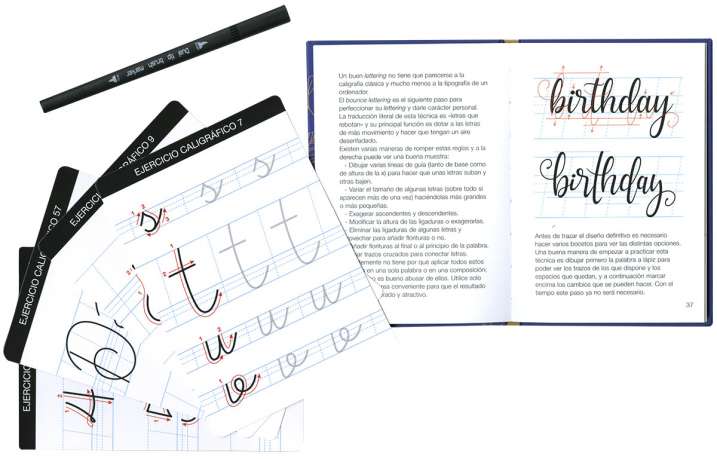 Dual tip brush marker
EJERCICIO CALIGRÁFICO 7
ÁFICO 9
EJERCICIO CALIGR
EJERCICIO CALIG
57
EJERCICIO
s s s
t t t
u u u u
e e e
Un buen lettering no tiene que parecerse a la
caligrafía clásica y mucho menos a la tipografía de un
ordenador.
El bounce lettering es el siguiente paso para
perfeccionar su lettering y darle carácter personal.
La traducción literal de esta técnica es «letras que
rebotan» y su principal función es dotar a las letras
de más movimiento y hacer que tengan un aire
desenfadado.
Existen varias maneras de romper estas reglas y a la
derecha puede ver una buena muestra:
- Dibujar varias líneas de guía (tanto de base como
de altura de la x) para hacer que unas letras suban y
otras bajen.
- Variar el tamaño de algunas letras (sobre todo si
aparecen más de una vez) haciéndolas más grandes
o más pequeñas.
- Exagerar ascendentes y descendentes.
- Modificar la altura de las ligaduras o exagerarlas.
Eliminar las ligaduras de algunas letras y
ovechar para añadir florituras o no.
ñadir florituras al final o al principio de la palabra.
ar trazos cruzados para conectar letras.
emente no tiene por qué aplicar todos estos
en una sola palabra o en una composición;
o es bueno abusar de ellos. Utilice solo
rea conveniente para que el resultado
rado y atractivo.
birthday
birthday
Antes de trazar el diseño definitivo es necesario
hacer varios bocetos para ver las distintas opciones.
Una buena manera de empezar a practicar esta
técnica es dibujar primero la palabra a lápiz para
poder ver los trazos de los que dispone y los
espacios que quedan, y a continuación marcar
encima los cambios que se pueden hacer. Con el
tiempo este paso ya no será necesario.
37